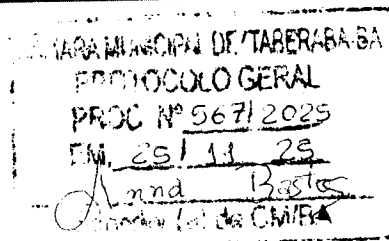 CÂMARA MUNICIPAL DE ITABERABA-BA
PROTOCOLO GERAL
PROC Nº 567/2025
EM, 25/11 25
Anna Bastos
(a) da CMI/BA